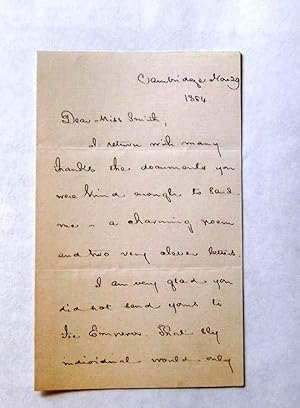 Cambridge Nov 29
1884
Dear Miss Smith,
I return with many
thanks the documents you
were kind enough to send
me - a charming poem
and two very clever letters.
I am very glad you
did not send yours to
the Emperor. That sly
individual would only